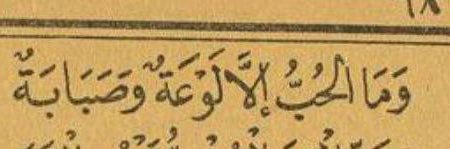 ١٨
وَمَا الحُبُّ إِلَّا لَوْعَةٌ وَصَبَابَةٌ